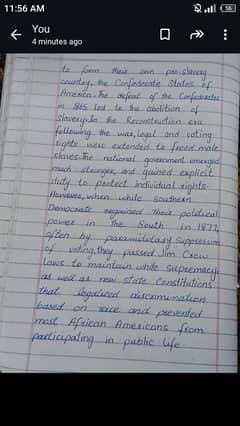 11:56 AM
58
You
4 minutes ago
to form their own pro-slavery
country, the Confederate States of
America. The defeat of the Confederates
in 1865 led to the abolition of
slavery. In the Reconstruction era
following the war, legal and voting
rights were extended to freed male
slaves. The national government emerged
much stronger, and gained explicit
duty to protect individual rights.
However, when white southern
Democrats regained their political
power in the South in 1877,
often by paramilitary suppression
of voting, they passed Jim Crow
laws to maintain white supremacy,
as well as new state constitutions
that legalized discrimination
based on race and prevented
most African Americans from
participating in public life.